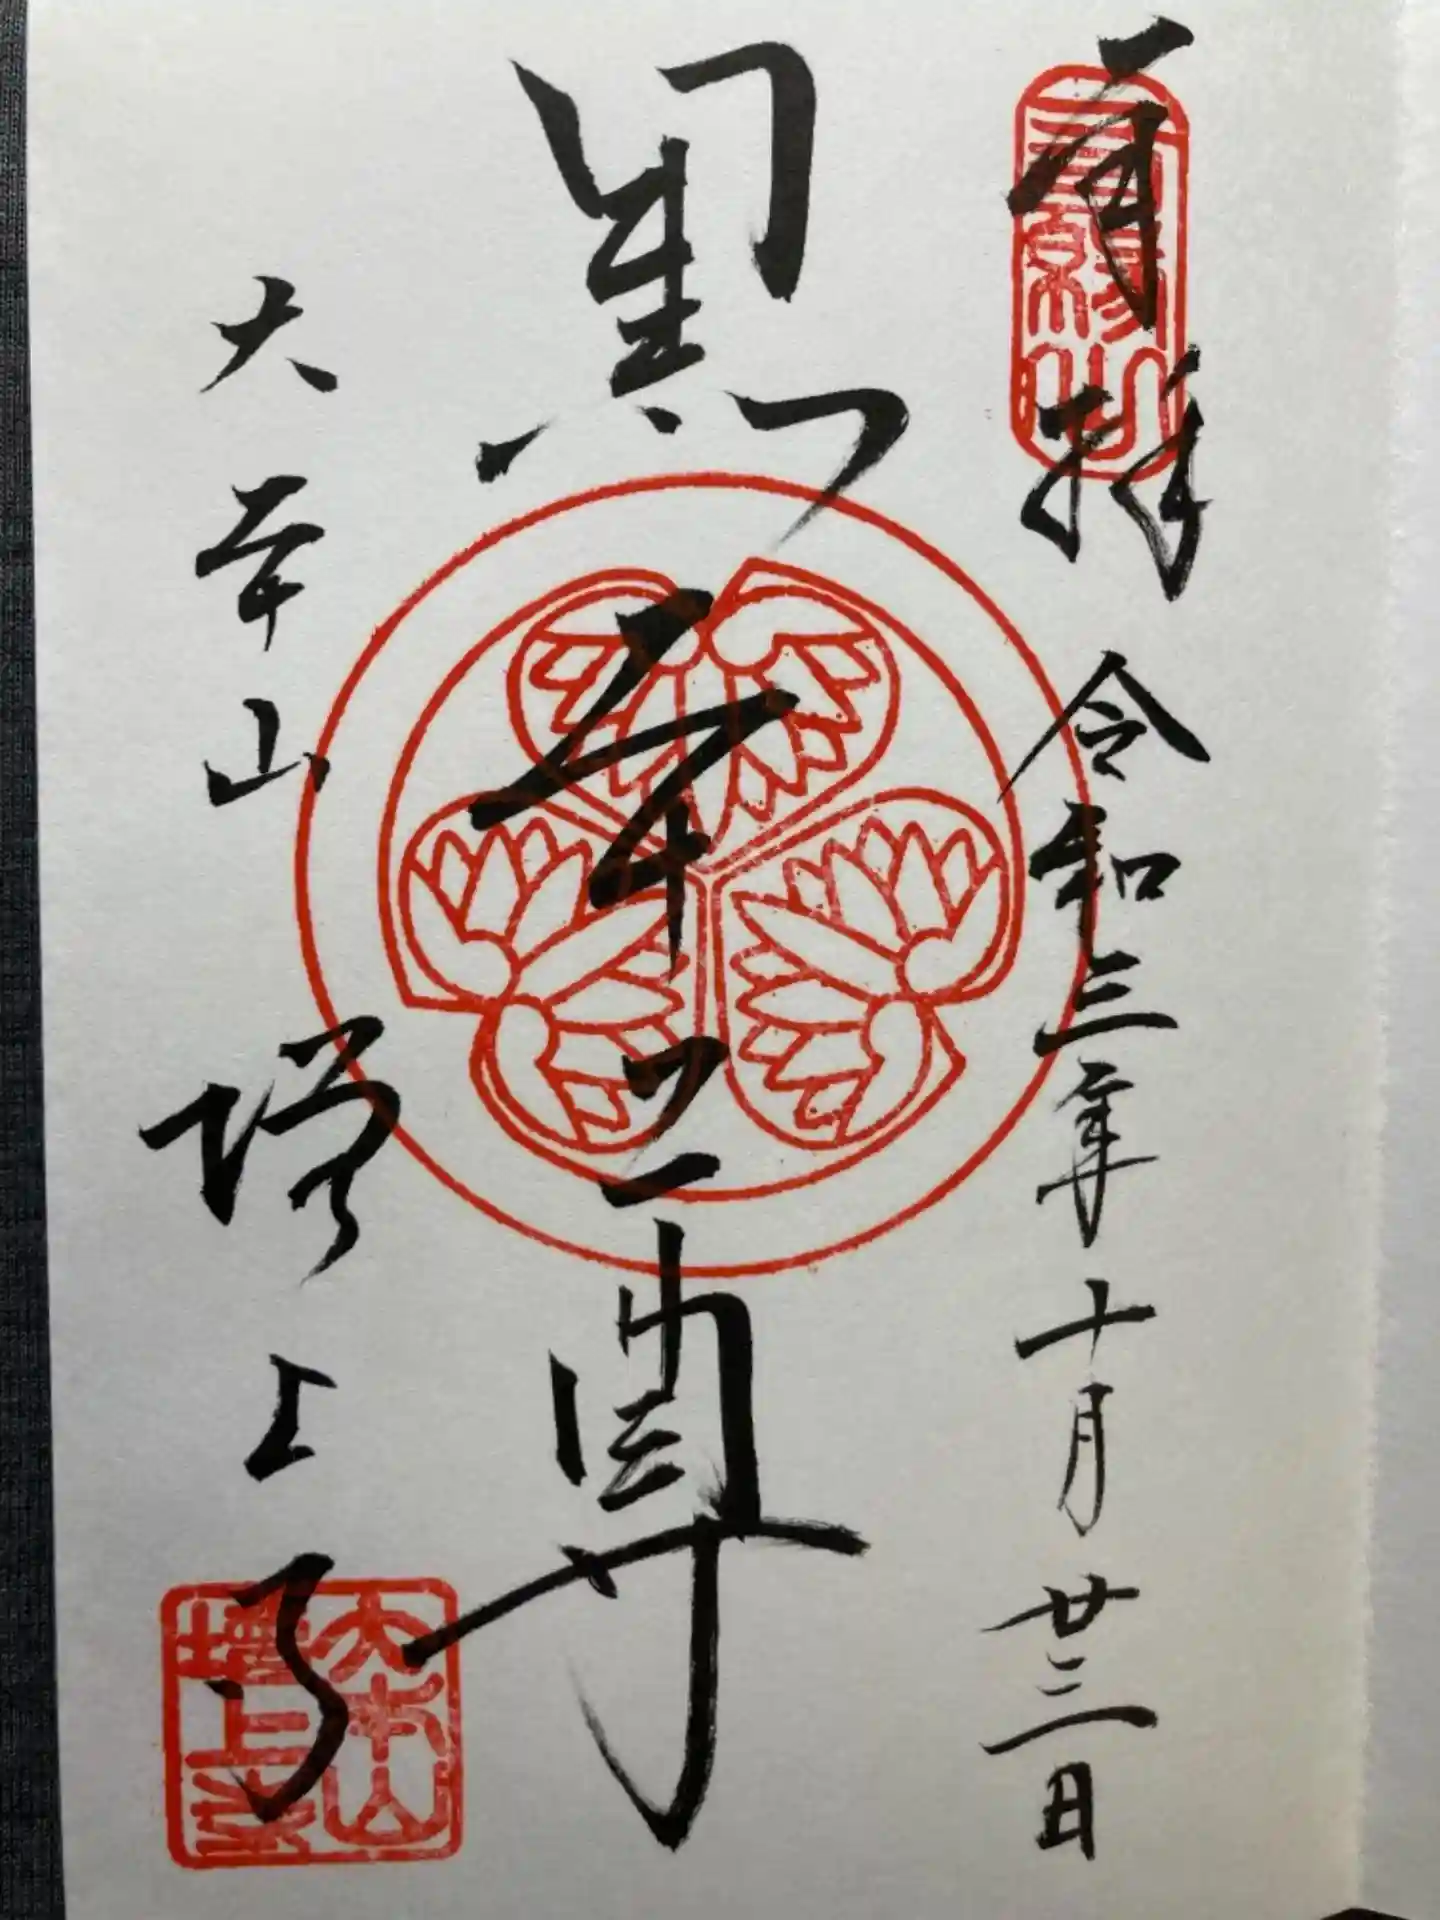 奉拝 令和三年十月廿三日
三縁山
黒本尊
大本山 増上寺
大本山
増上寺